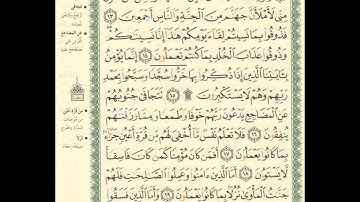 مِنِّي لَأَمْلَأَنَّ جَهَنَّمَ مِنَ الْجِنَّةِ وَالنَّاسِ أَجْمَعِينَ ١٣
فَذُوقُوا بِمَا نَسِيتُمْ لِقَاءَ يَوْمِكُمْ هَٰذَا إِنَّا نَسِينَاكُمْ
وَذُوقُوا عَذَابَ الْخُلْدِ بِمَا كُنتُمْ تَعْمَلُونَ ١٤ إِنَّمَا يُؤْمِنُ
بِآيَاتِنَا الَّذِينَ إِذَا ذُكِّرُوا بِهَا خَرُّوا سُجَّدًا وَسَبَّحُوا بِحَمْدِ
رَبِّهِمْ وَهُمْ لَا يَسْتَكْبِرُونَ ۩ ١٥ تَتَجَافَىٰ جُنُوبُهُمْ
عَنِ الْمَضَاجِعِ يَدْعُونَ رَبَّهُمْ خَوْفًا وَطَمَعًا وَمِمَّا رَزَقْنَاهُمْ
يُنفِقُونَ ١٦ فَلَا تَعْلَمُ نَفْسٌ مَّا أُخْفِيَ لَهُم مِّن قُرَّةِ أَعْيُنٍ جَزَاءً
بِمَا كَانُوا يَعْمَلُونَ ١٧ أَفَمَن كَانَ مُؤْمِنًا كَمَن كَانَ فَاسِقًا
لَّا يَسْتَوُونَ ١٨ أَمَّا الَّذِينَ آمَنُوا وَعَمِلُوا الصَّالِحَاتِ فَلَهُمْ
جَنَّاتُ الْمَأْوَىٰ نُزُلًا بِمَا كَانُوا يَعْمَلُونَ ١٩ وَأَمَّا الَّذِينَ فَسَقُوا